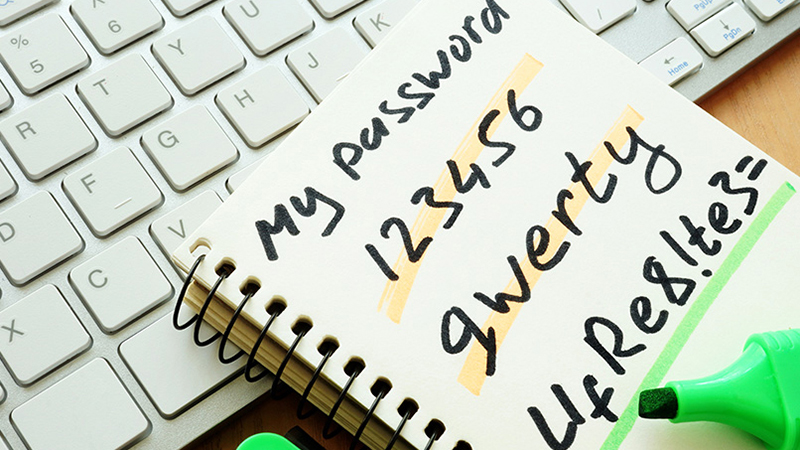 My password
123456
qwerty
UfRe8!te3=
^
6
%
5
R
T
Y
D
F
G
H
J
K
X
C
V
PgUp
PgDn
Home